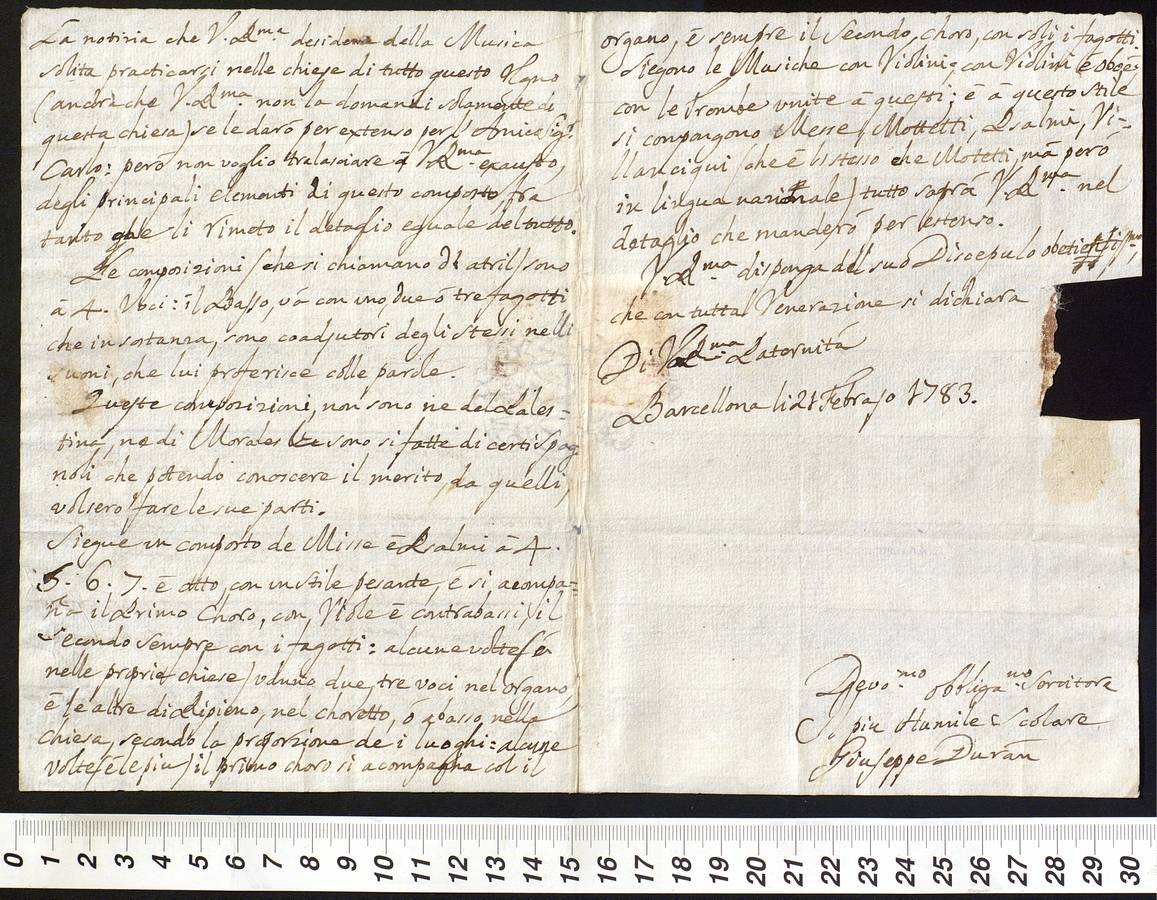 La notizia che V. Rma desidera della Musica
solita practicarsi nelle chiese di tutto questo Regno
(ancorà che V. Rma non la domandi solamente di
questa chiesa) se le darò per extenso per l'Amico Sigr.
Carlo: però non voglio tralasciare à V. Rma exausto,
degli principali elementi di questo composto fra
tanto che li rimeto il detaglio eguale del tutto.
Le composizioni (che si chiamano di atril) sono
à 4. Voci: il Basso, và con uno, due o tre fagotti
che in sostanza, sono coadjutori degli stessi nelli
suoni, che lui proferisce colle parole.
Queste composizioni, non sono ne del Pales-
tina, ne di Morales sono si fatte di certi Spag
noli che potendo conoscere il merito, da quelli,
volsero fare le sue parti.
Siegue un composto de Misse è Psalmi à 4.
5. 6. 7. è otto, con un stile pesante, è si acompa=
na il Primo Choro, con, Viole è contrabassi, il
Secondo sempre con i fagotti: alcune volte (è
nelle proprie chiese) uduno due, tre voci nel organo,
è le altre di Ripieno, nel choretto, ò abasso, nella
chiesa, secondo la proporzione de i luoghi: alcune
volte (è le piu) il primo choro si acompagna col il
organo, è sempre il Secondo, choro, con soli i fagotti.
Siegono le Musiche con Violini; con Violini è oboè;
con le Trombe unite à questi; è a questo stile
si compongono Messe, Mottetti, Psalmi, Vi-
llanciqui (che è listesso che Motetti, mà però
in lingua nazionale) tutto saprà V. Rma nel
detaglio che manderò per lestenso.
V. Rma disponga del suo Discepulo
che con tutta Venerazione si dichiara
Di V. Rma Paternità
Barcellona li 21 Febrajo 1783.
Devo.mo obbliga.mo Servitore
è piu Humile Scolare
Giuseppe Duran
0 1 2 3 4 5 6 7 8 9 10 11 12 13 14 15 16 17 18 19 20 21 22 23 24 25 26 27 28 29 30